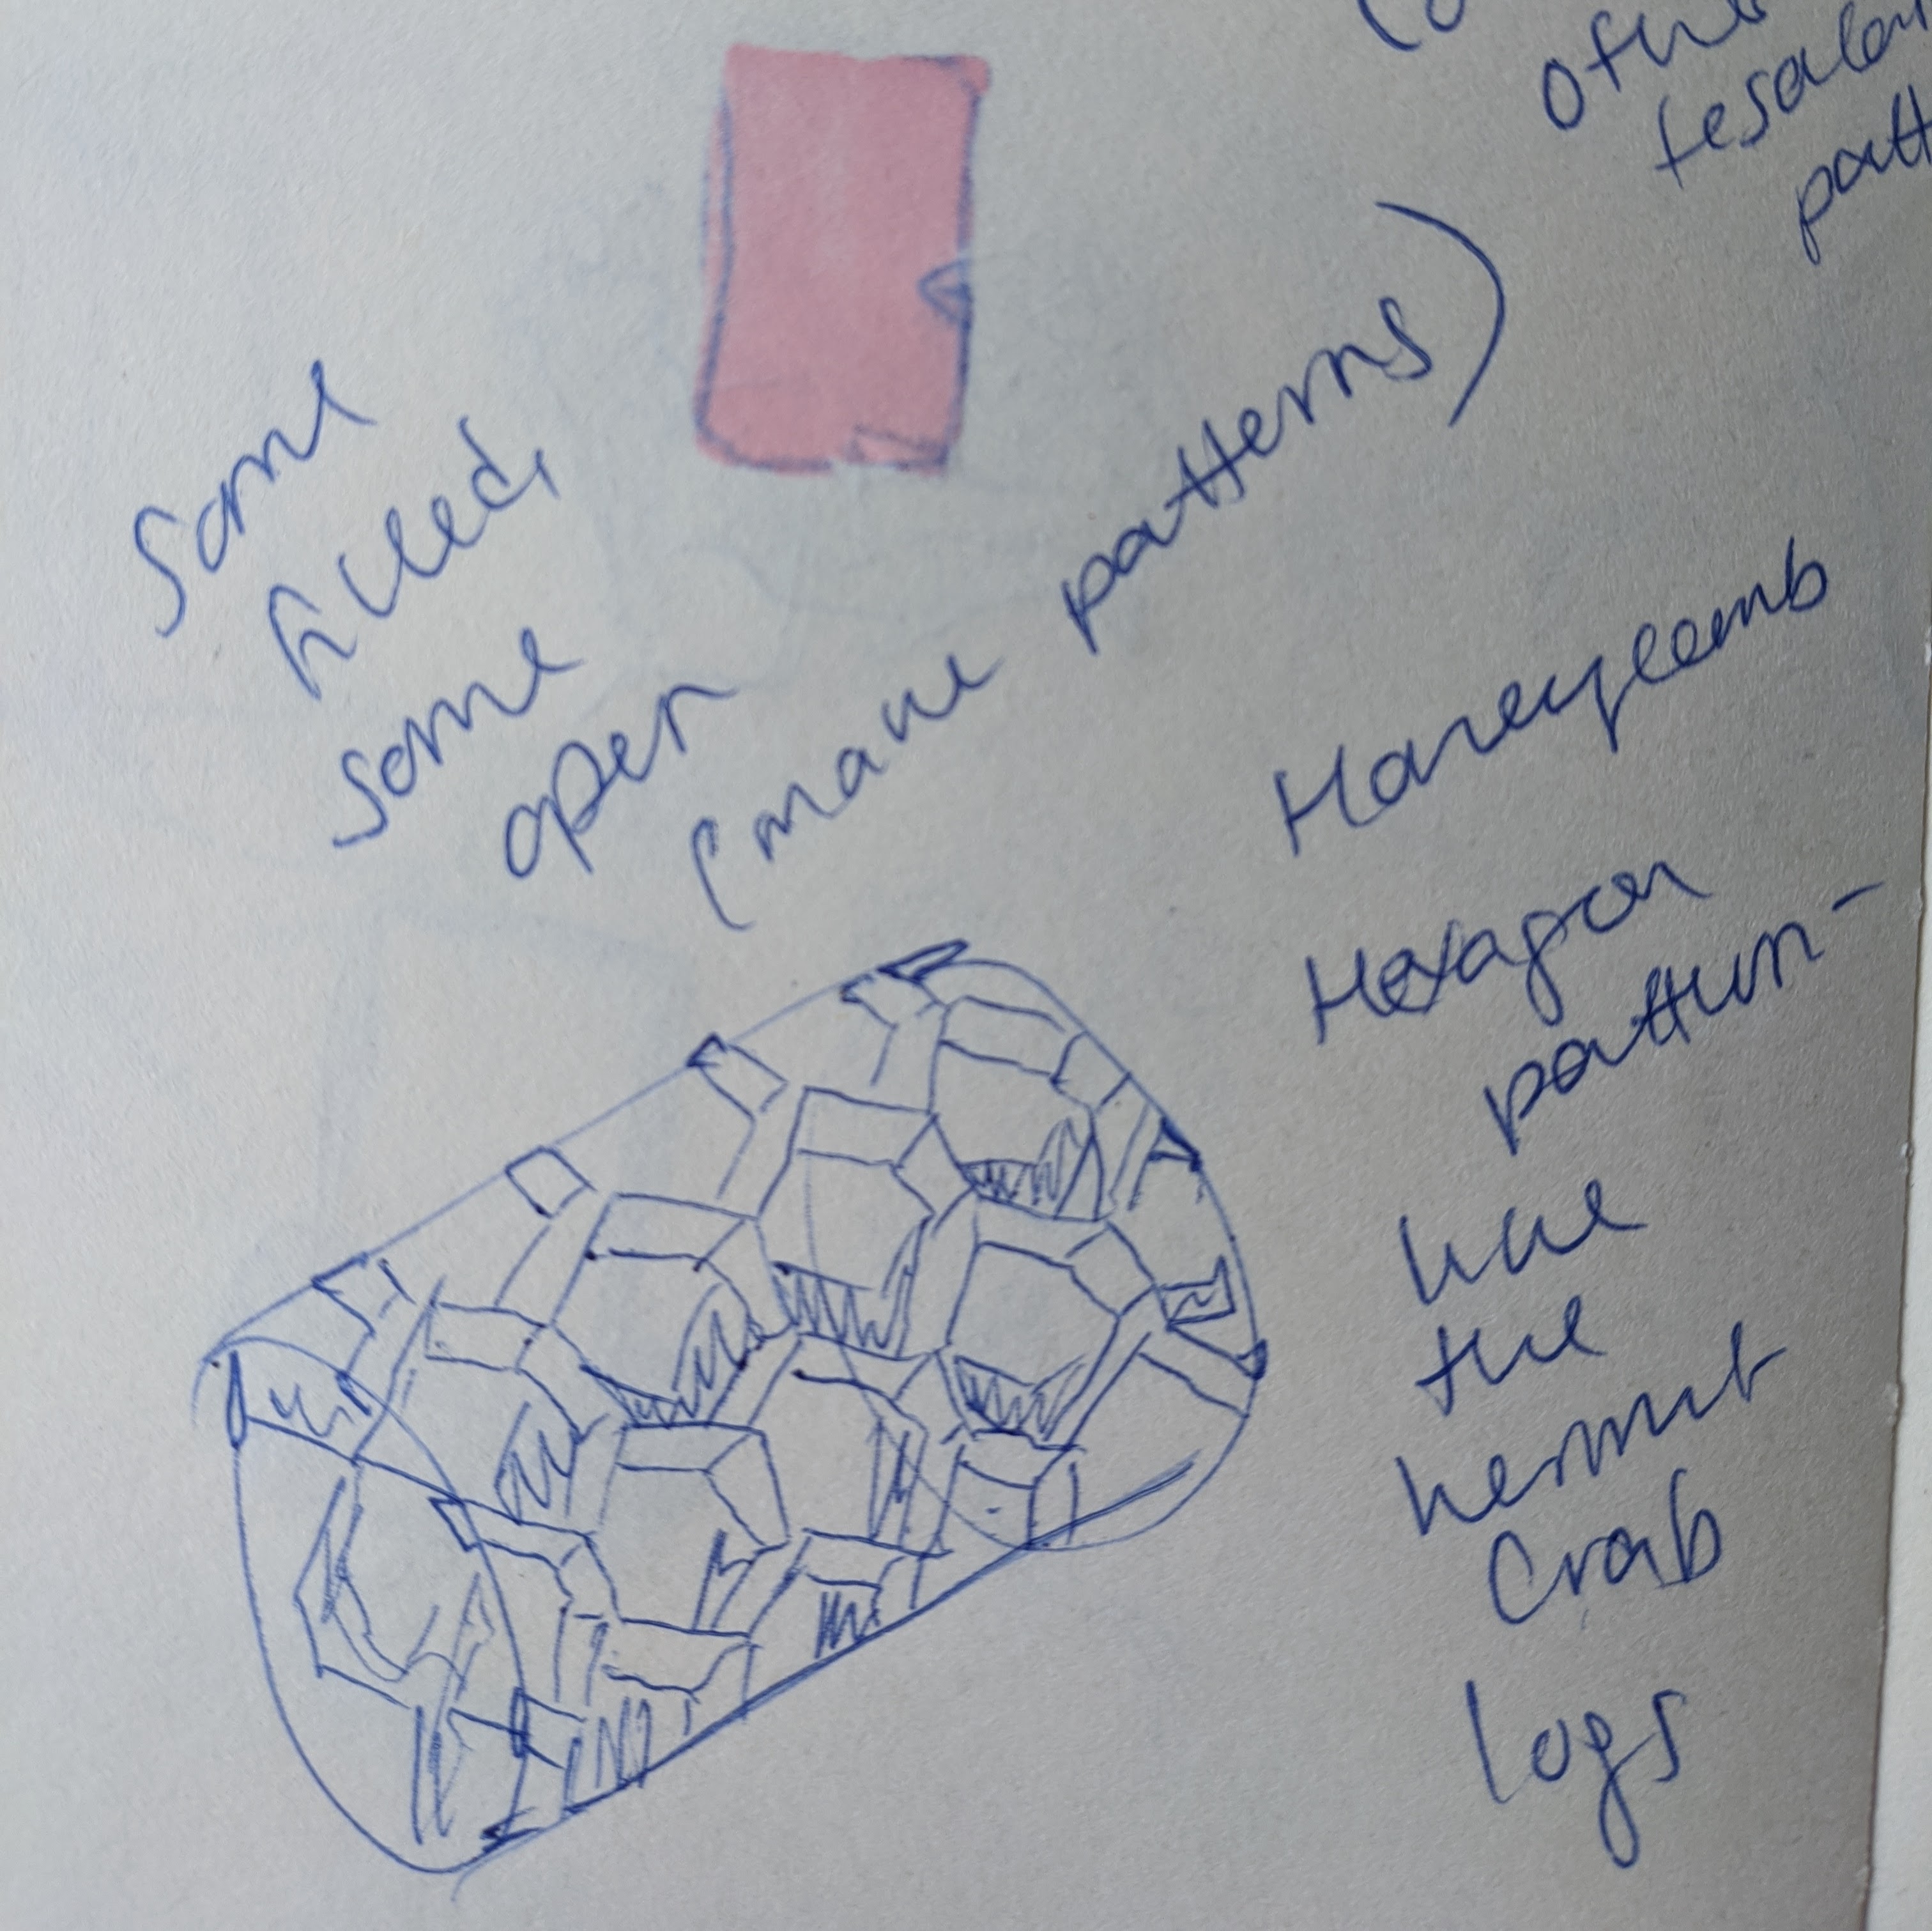 (o
other
tesalan
patt
Some
filled,
some
open
(make patterns)
Honeycomb
Hexagon
pattern-
like
the
hermit
Crab
logs